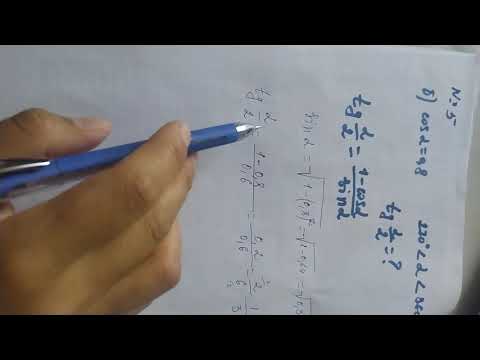 N:5
б) cosα=0,8    270°<α<360
tg α/2 = ?
tg α/2 = 1-cosα / sinα
sinα = √1-(0,8)² = √1-0,64 = √0,3
tg α/2 = 1-0,8 / 0,6 = 0,2 / 0,6 = 2 / 6 = 1 / 3